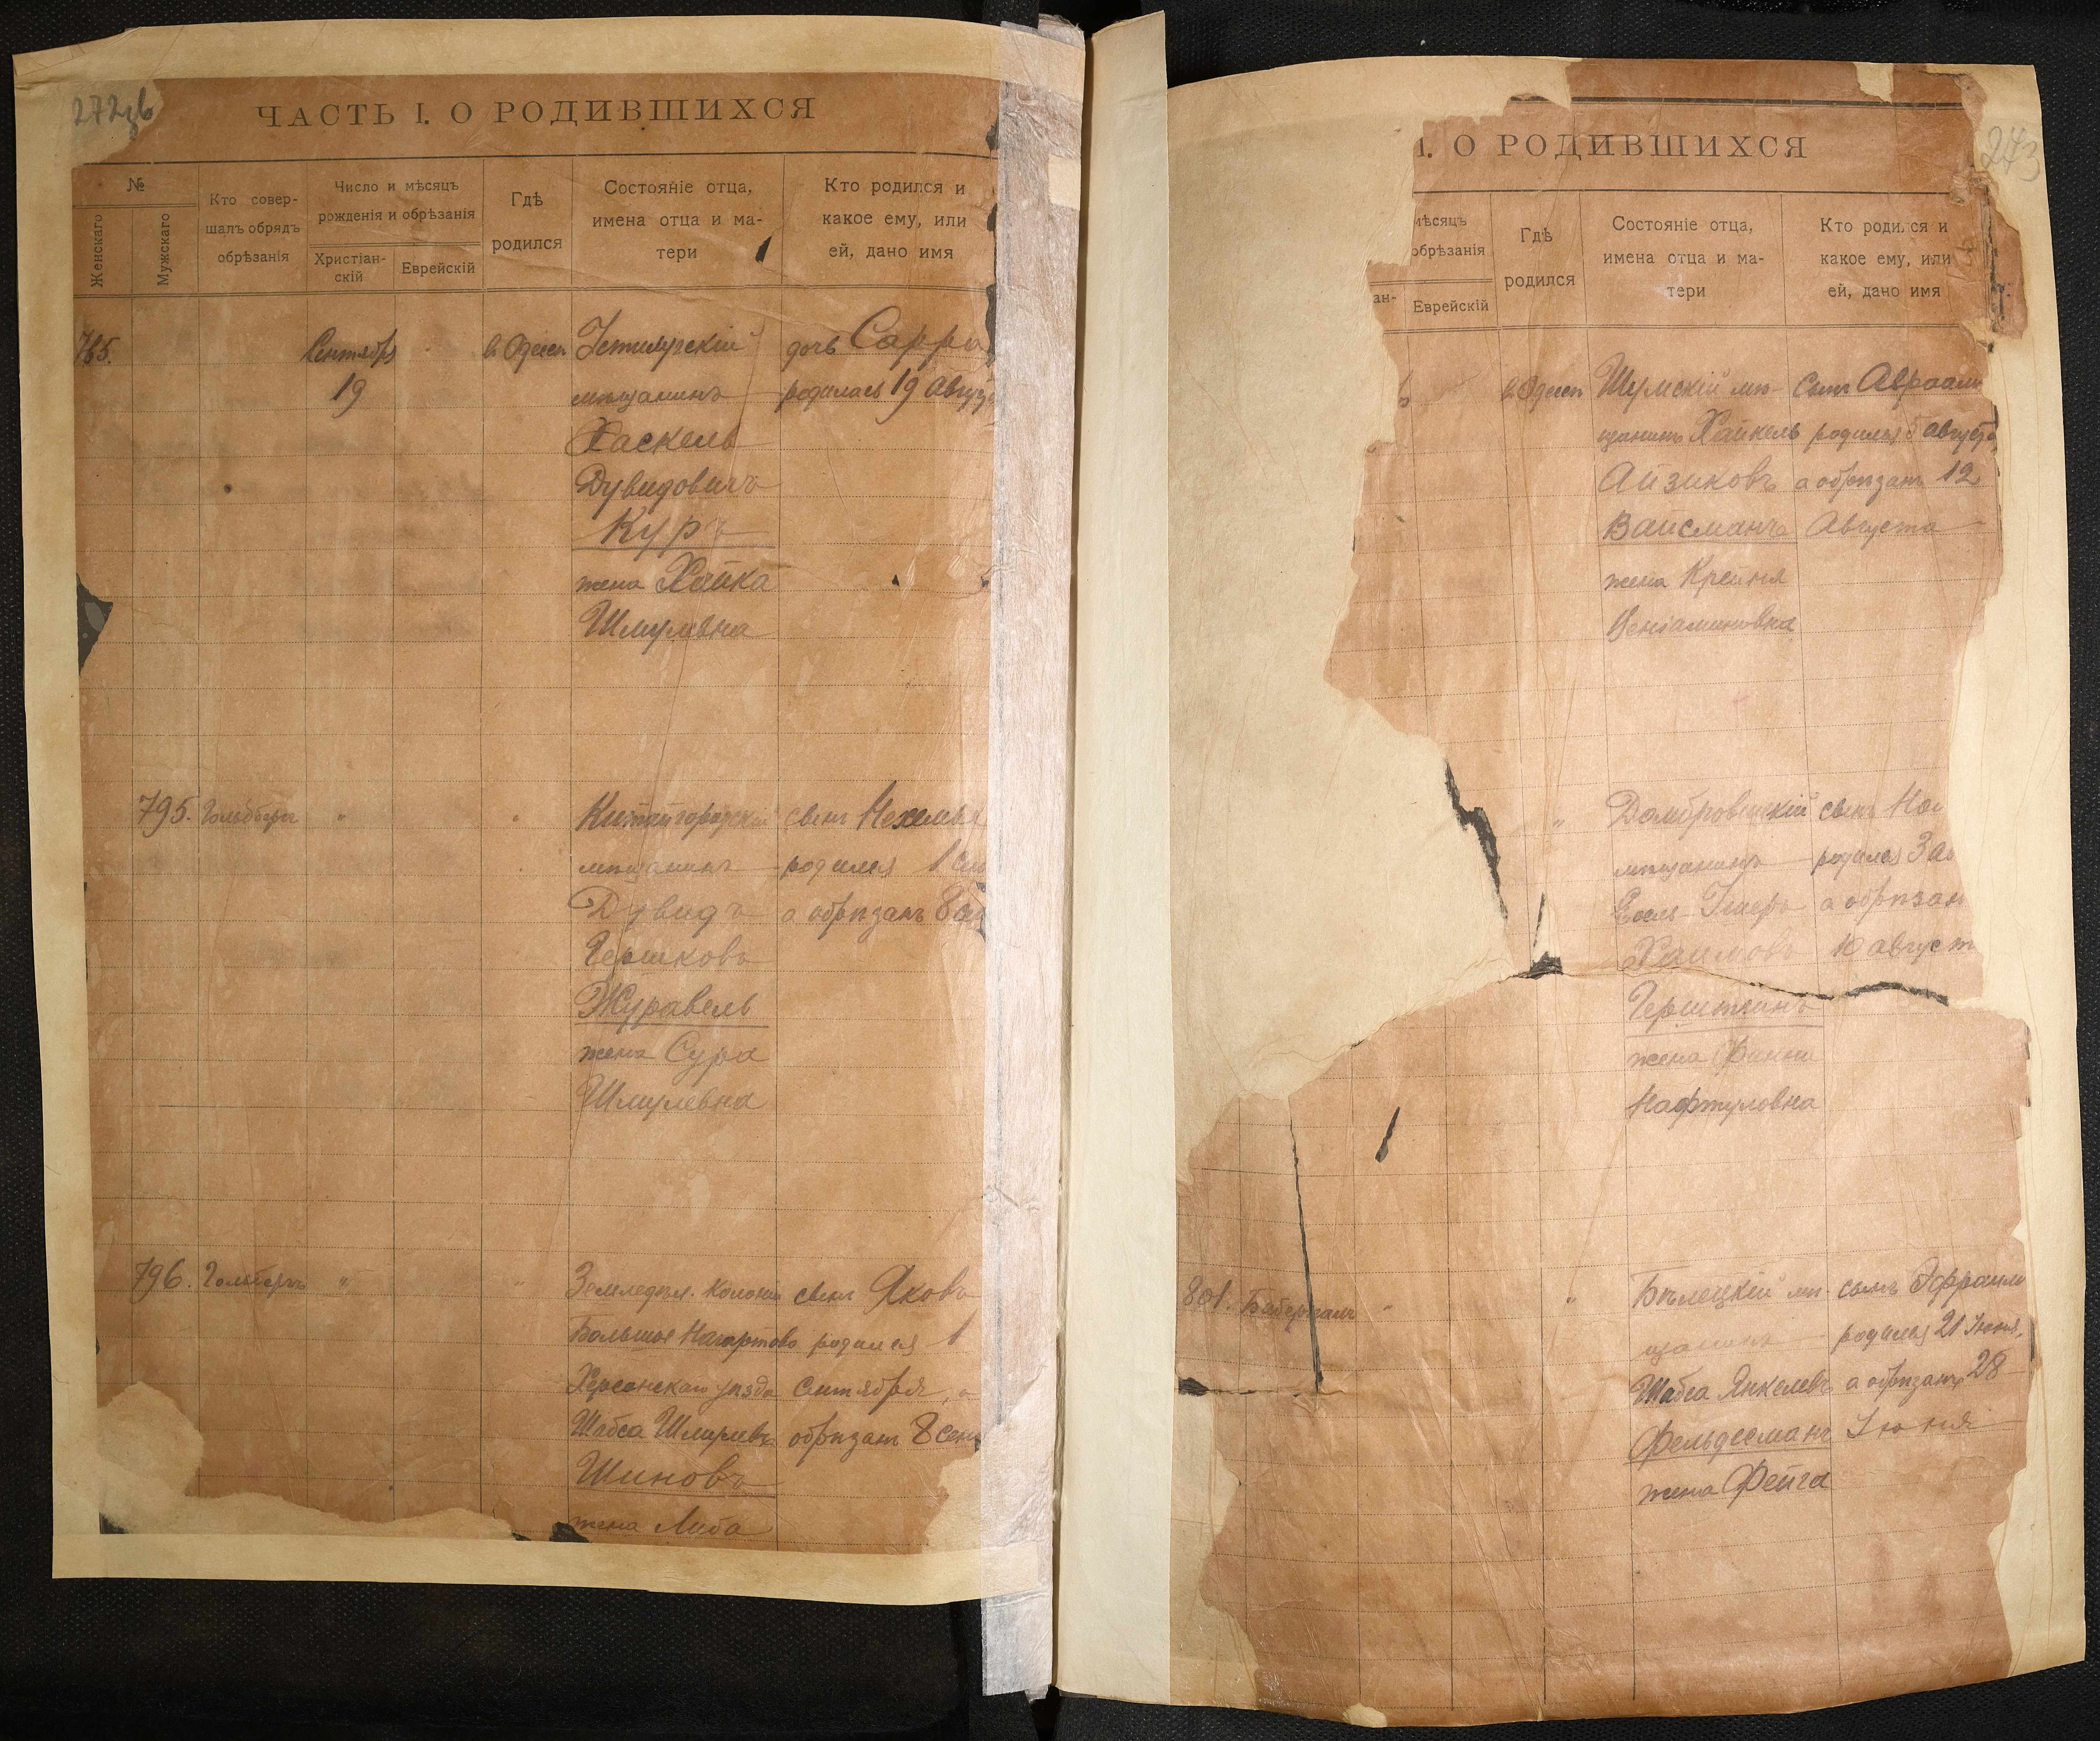 272об
ЧАСТЬ I. О РОДИВШИХСЯ
№
Женскаго
Мужскаго
Кто совер-
шалъ обрядъ
обрѣзанія
Число и мѣсяцъ
рожденія и обрѣзанія
Христіан-
скій
Еврейскій
Гдѣ
родился
Состояніе отца,
имена отца и ма-
тери
Кто родился и
какое ему, или
ей, дано имя
785.
Сентября
19
в Одессѣ
мѣщанинъ
Хаскель
Дувидовичъ
Куръ
жена Хайка
Шмулевна
дочь Сарра
родилась 19 август
795. Гольдбергъ " "
Китайгородскій
мѣщанинъ
Дувидъ
Гершковъ
Журавель
жена Сура
Шмулевна
сынъ Нехемья
родился 1 сен
а обрѣзанъ 8 сен
796. " "
Земледѣл. колоніи
Большое Нагартово
Херсонскаго уѣзда
Шабса Шмулевъ
Шиновъ
жена Либа
сынъ Яковъ
родился 1
Сентября, а
обрѣзанъ 8 сен
273
I. О РОДИВШИХСЯ
мѣсяцъ
обрѣзанія
ан-
Еврейскій
Гдѣ
родился
Состояніе отца,
имена отца и ма-
тери
Кто родился и
какое ему, или
ей, дано имя
в Одессѣ
Шумскій мѣ-
щанинъ Хайкель
Айзиковъ
Вайсманъ
жена Крейня
Веніаминовна
сынъ Авраам
родился 5 августа
а обрѣзанъ 12
Августа
"
мѣщанинъ
Хаимовъ
жена
Нафтуловна
сынъ
родился 3 ав
а обрѣзан
10 август
801. " "
Бѣлецкій мѣ-
щанинъ
Шабса Янкелевъ
Фельдсманъ
жена Фейга
сынъ Эфраим
родился 21 Іюня,
а обрѣзанъ 28
Іюня